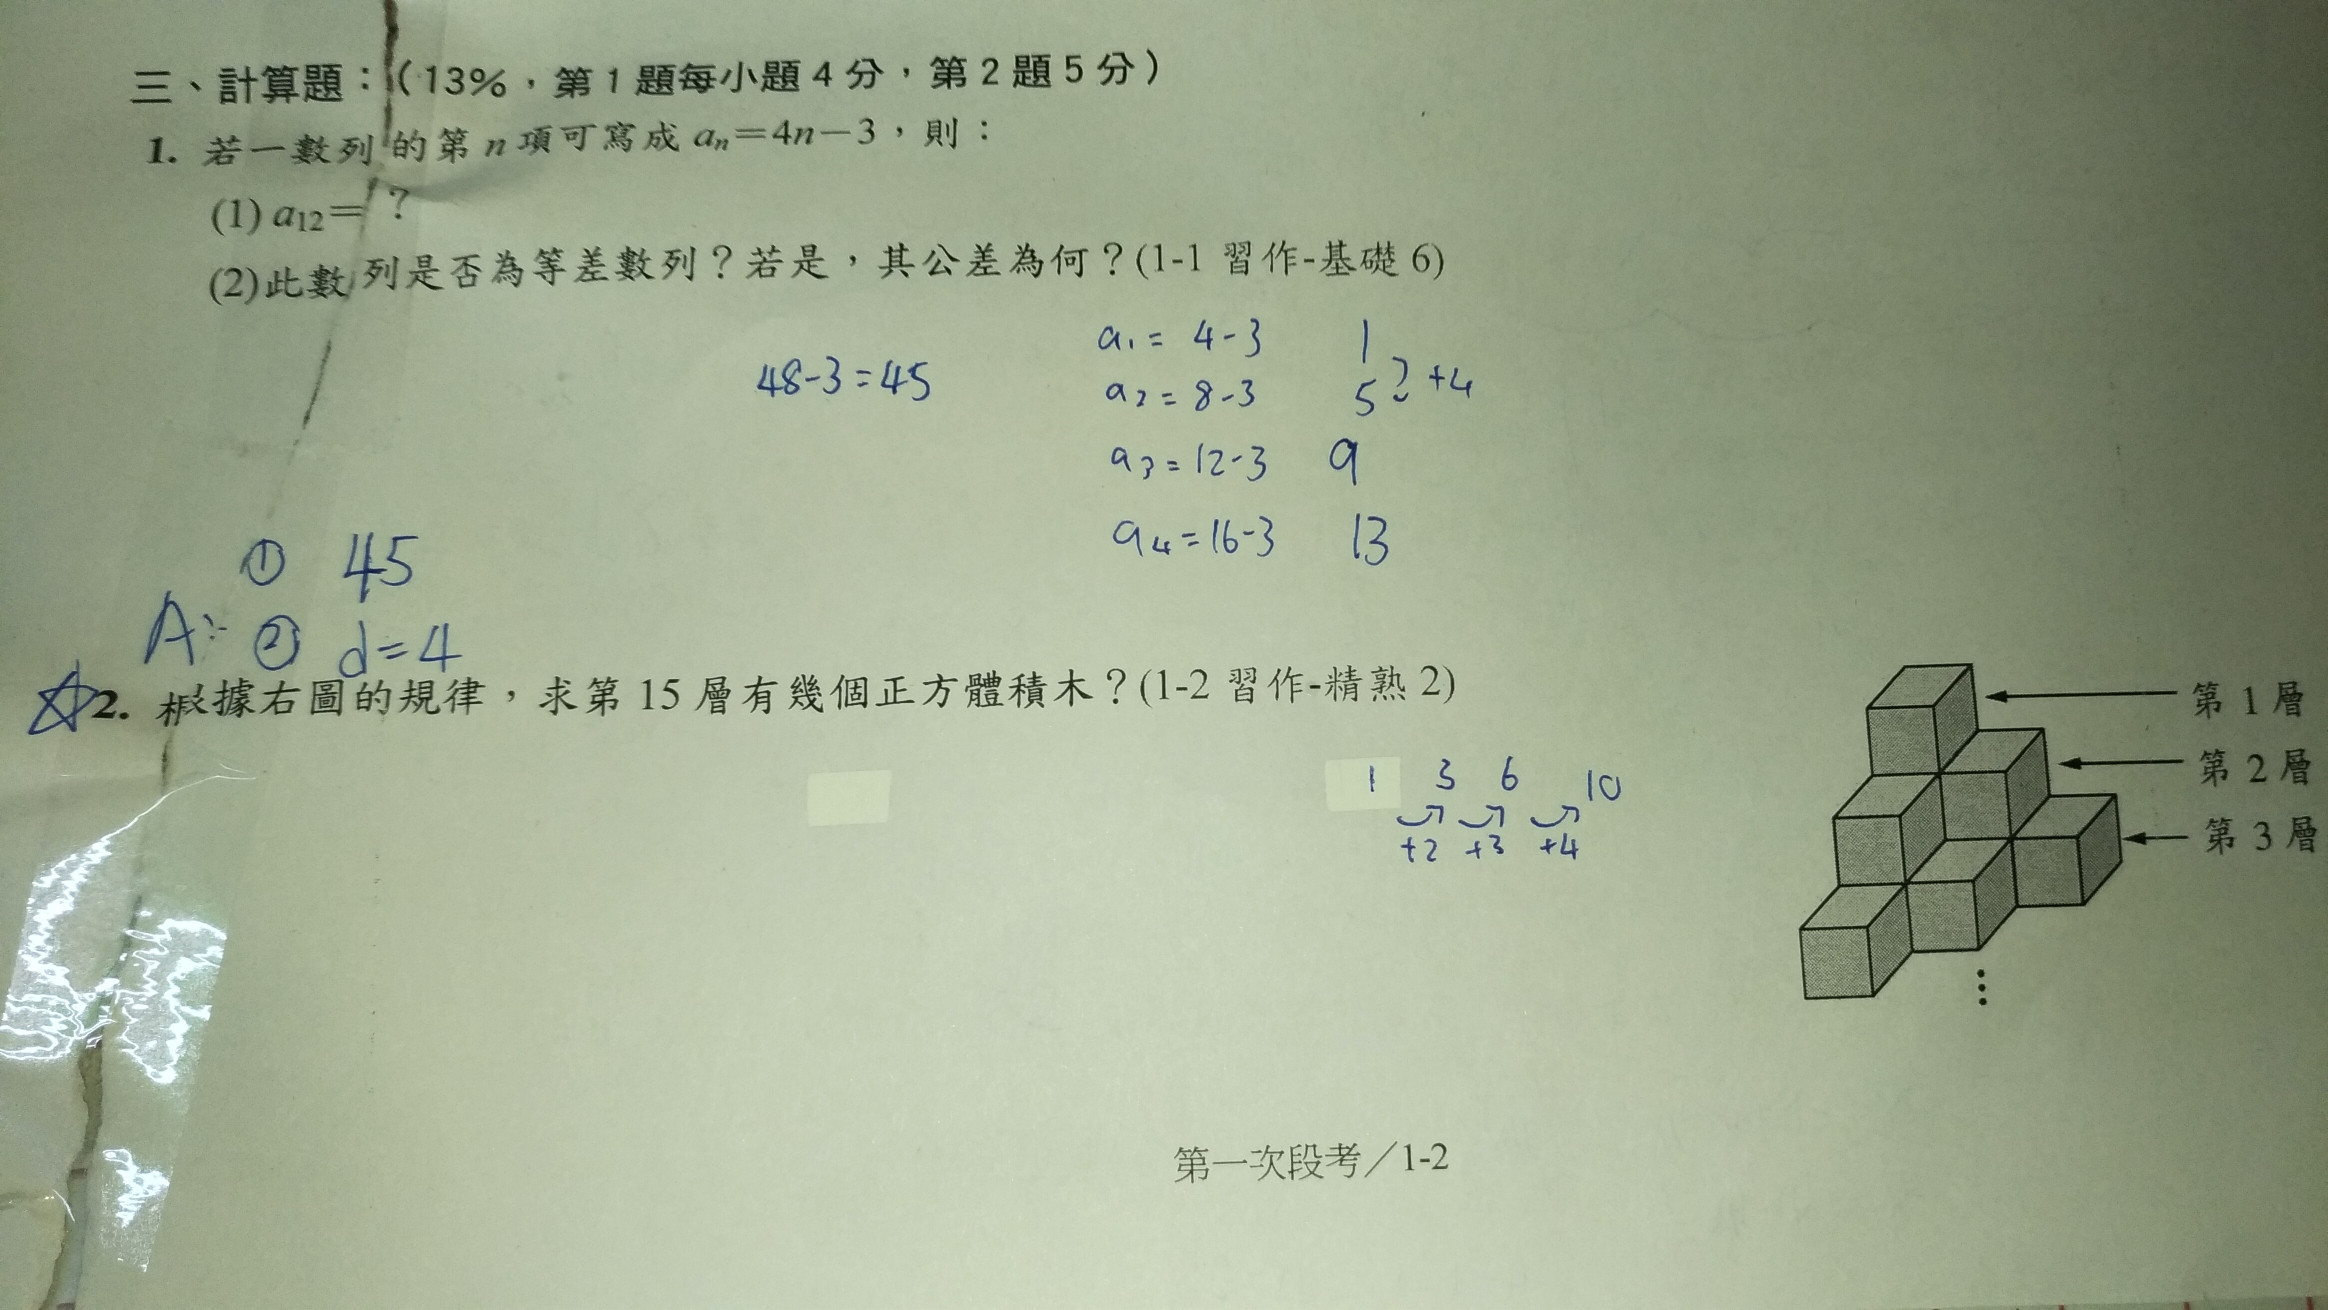 三、計算題：（13%，第1題每小題4分，第2題5分）
1. 若一數列的第n項可寫成 aₙ＝4n－3，則：
(1) a₁₂＝？
(2)此數列是否為等差數列？若是，其公差為何？(1-1 習作-基礎 6)
48-3=45
a₁= 4-3 1
a₂=8-3 5 +4
a₃=12-3 9
a₄=16-3 13
A: ① 45
② d=4
☆2. 根據右圖的規律，求第 15 層有幾個正方體積木？(1-2 習作-精熟 2)
1 3 6 10
+2 +3 +4
第 1 層
第 2 層
第 3 層
⋮
第一次段考／1-2